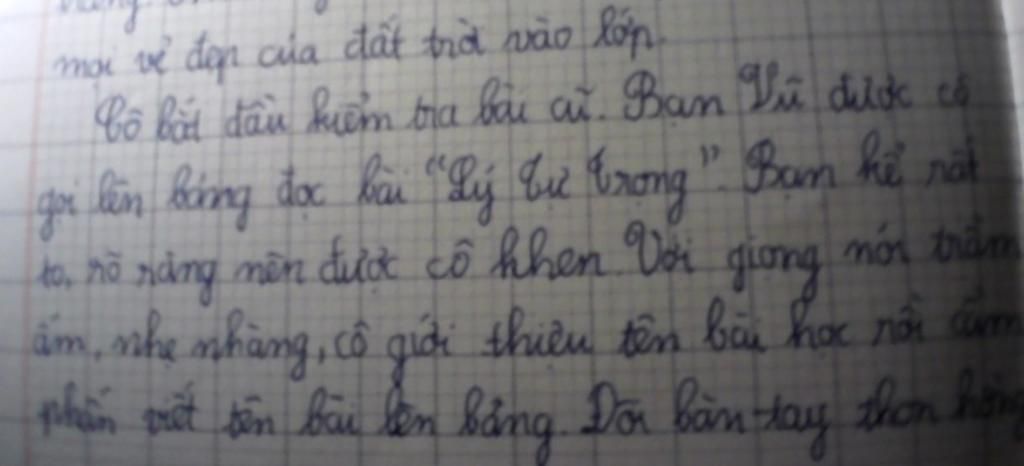 mọi vẻ đẹp của đất trời vào lớp.
Cô bắt đầu kiểm tra bài cũ. Bạn Vũ được cô
gọi lên bảng đọc bài "Lý Tự Trọng". Bạn kể rất
to, rõ ràng nên được cô khen. Với giọng nói trầm
ấm, nhẹ nhàng, cô giới thiệu tên bài học rồi cầm
phấn viết tên bài lên bảng. Đôi bàn tay thon